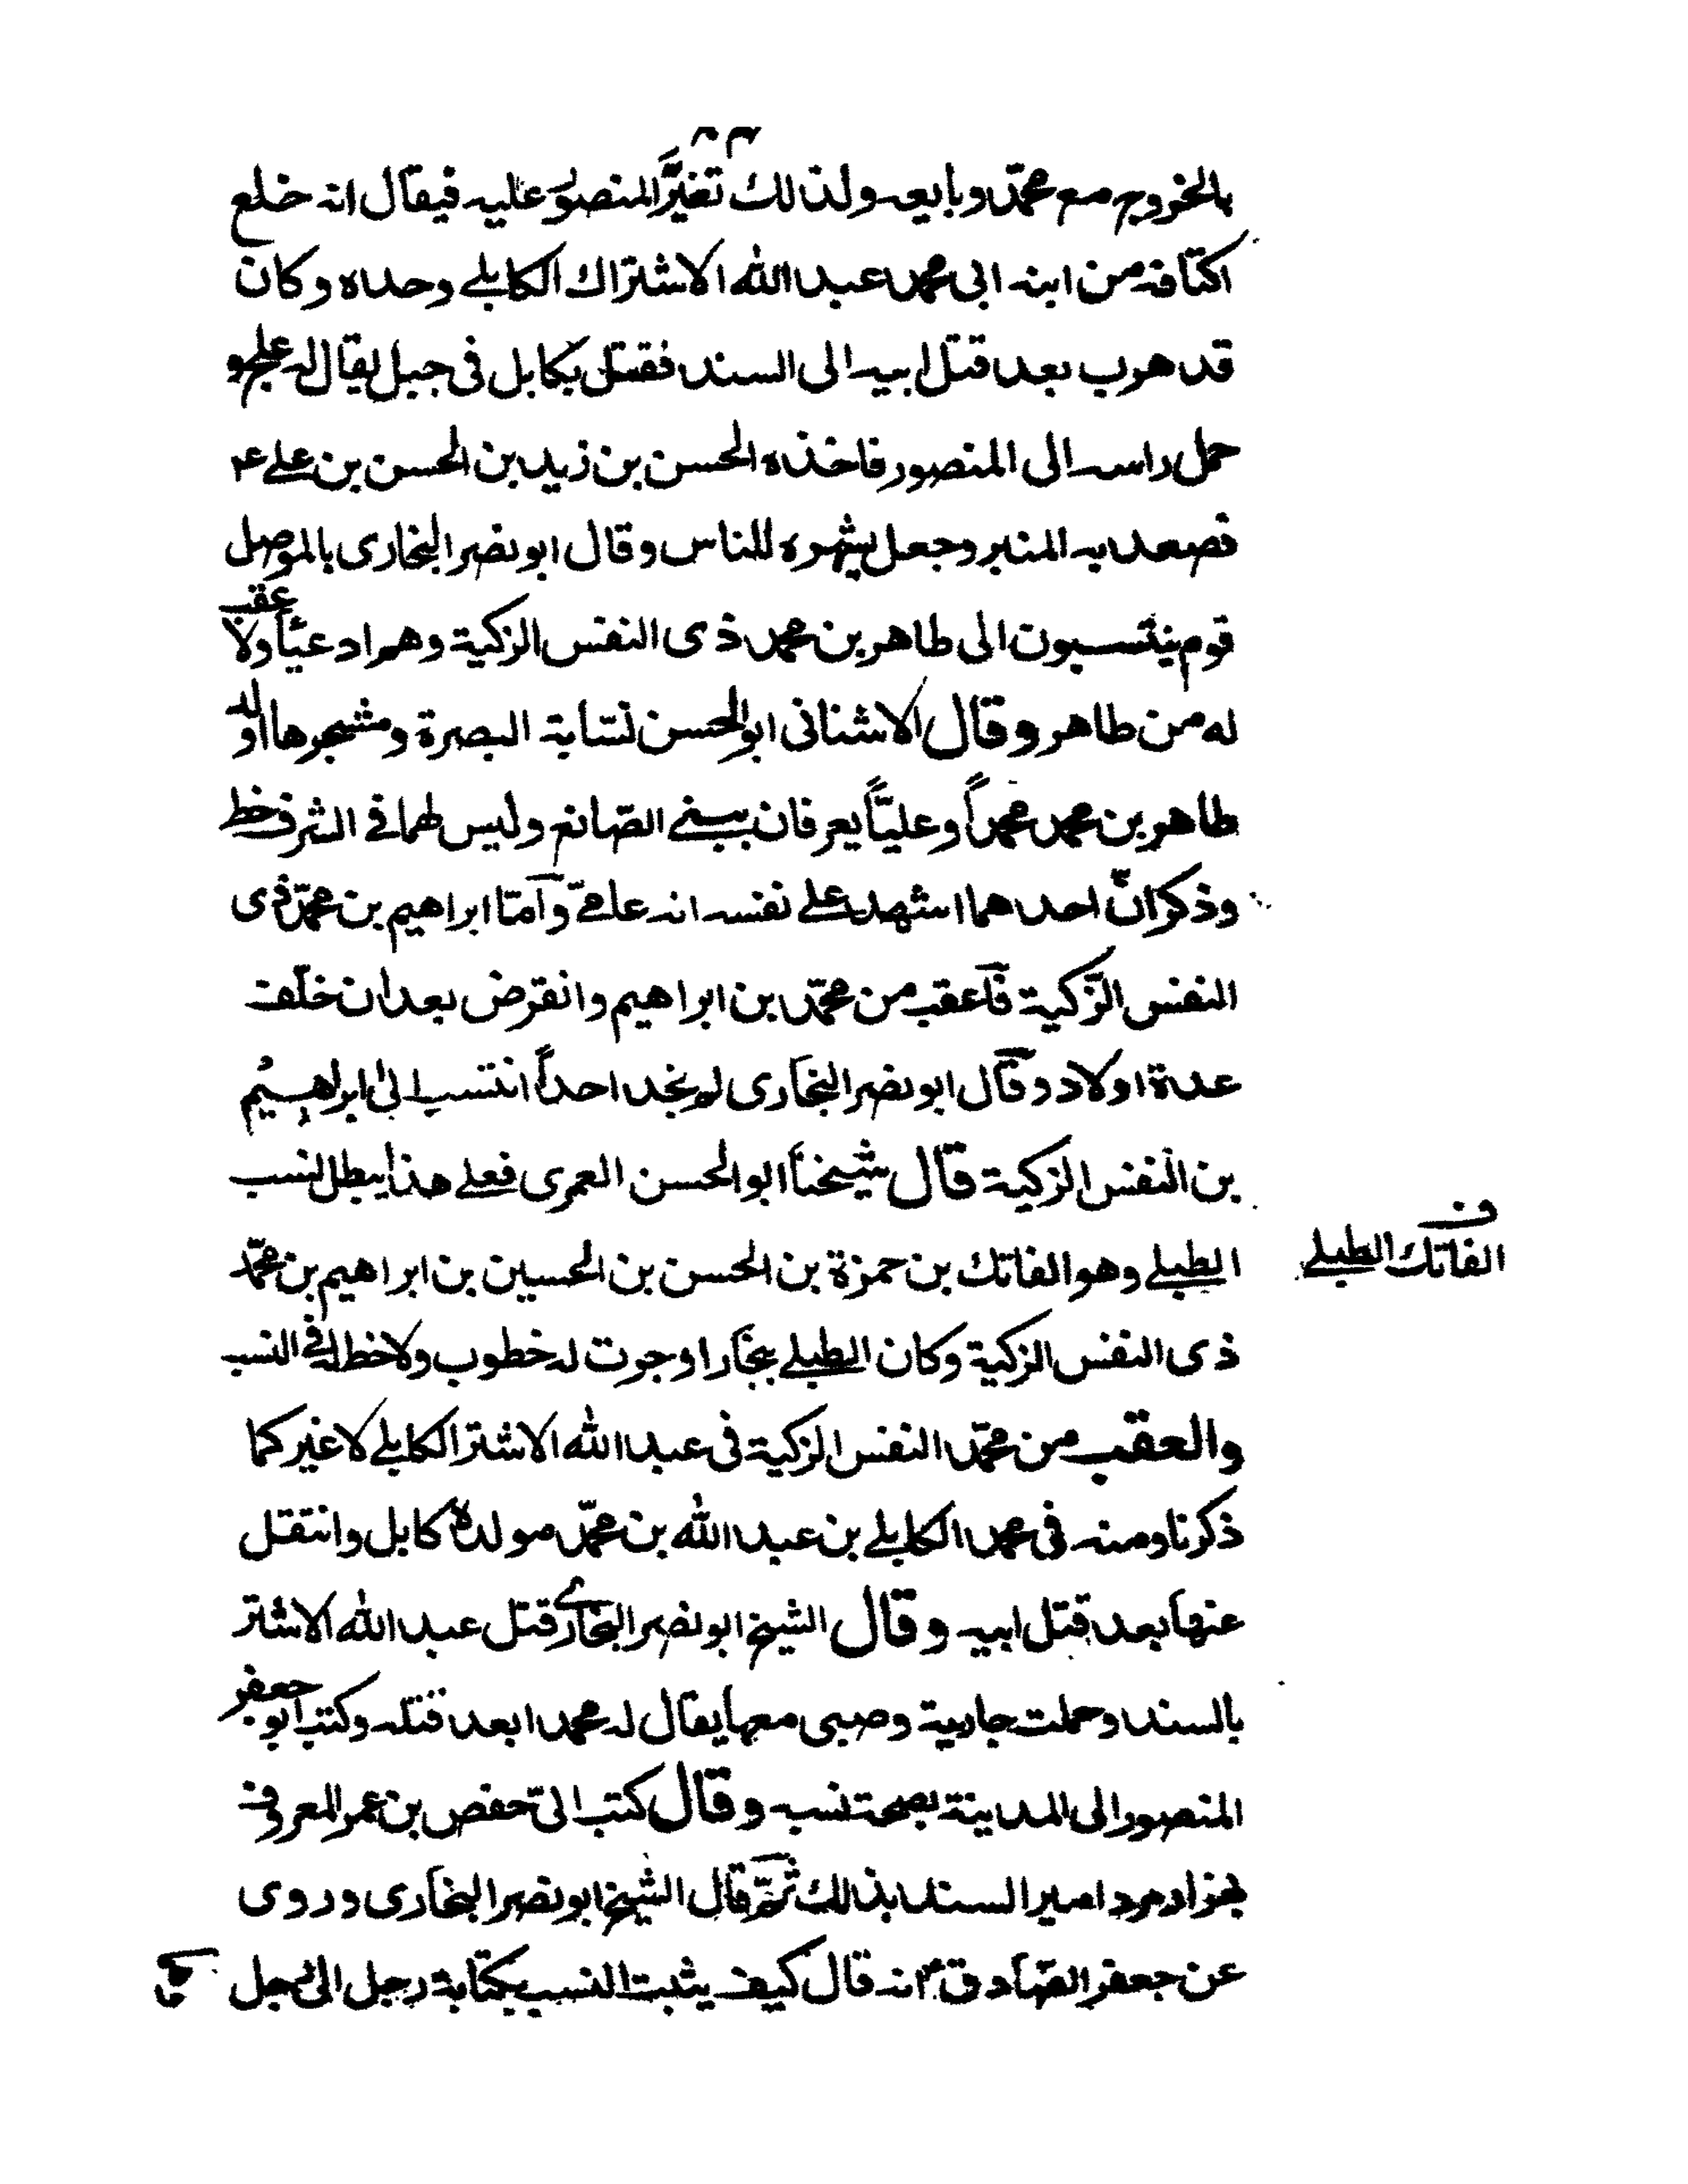 بالخروج مع محمّد وبايعه ولذلك تغيَّر المنصور عليه فيقال انه خلع
اكتافه من ابنه ابى محمد عبدالله الاشتراك الكابلے وحده وكان
قد هرب بعد قتل ابيه الى السند فقتل بكابل فى جبل يقال له علج و
حمل راسه الى المنصور فاخذه الحسن بن زيد بن الحسن بن علے ع
فصعد به المنبر وجعل يشهره للناس وقال ابو نصر البخارى بالموصل
قوم ينتسبون الى طاهر بن محمد ذى النفس الزكية وهم ادعيآ ولا عقب
له من طاهر وقال الاشنانى ابو الحسن نسّابة البصرة ومشجرها اولد
طاهر بن محمد محمداً وعليّاً يعرفان ببنے الصّانع وليس لهما فے الشرف خط
وذكر انّ احدهما اشهد علے نفسه انه عامے وآمّا ابراهيم بن محمّد ذى
النفس الزّكية فآعقب من محمّد ابن ابراهيم وانقرض بعد ان خلّف
عدة اولاد وقآل ابو نصر البخارى لم نجد احداً انتسب الى ابراهيم
بن النفس الزكية قال شيخنا ابو الحسن العمرى فعلے هذا يبطل نسب
الطبلے وهو الفاتك بن حمزة بن الحسن بن الحسين بن ابراهيم بن محمّد
الفاتك الطبلے
ذى النفس الزكية وكان الطبلے ببخارا وجرت له خطوب ولا خط له فے النسب
والعقب من محمّد النفس الزكية فى عبد الله الاشتر الكابلے لا غير كما
ذكرنا ومنه فى محمد الكابلے بن عبد الله بن محمّد مولده كابل وانتقل
عنها بعد قتل ابيه وقال الشيخ ابو نصر البخارے قتل عبد الله الاشتر
بالسند وحملت جارية وصبى معها يقال له محمد بعد قتله وكتب ابو جعفر
المنصور الى المدينة بصحة نسبه وقال كتب الىّ حفص بن عمر المعروف
بهزار مرد امير السند بذلك ثمّ قال الشيخ ابو نصر البخارى وروى
عن جعفر الصّادق ع انه قال كيف يثبت النسب بكتابة رجل الى رجل